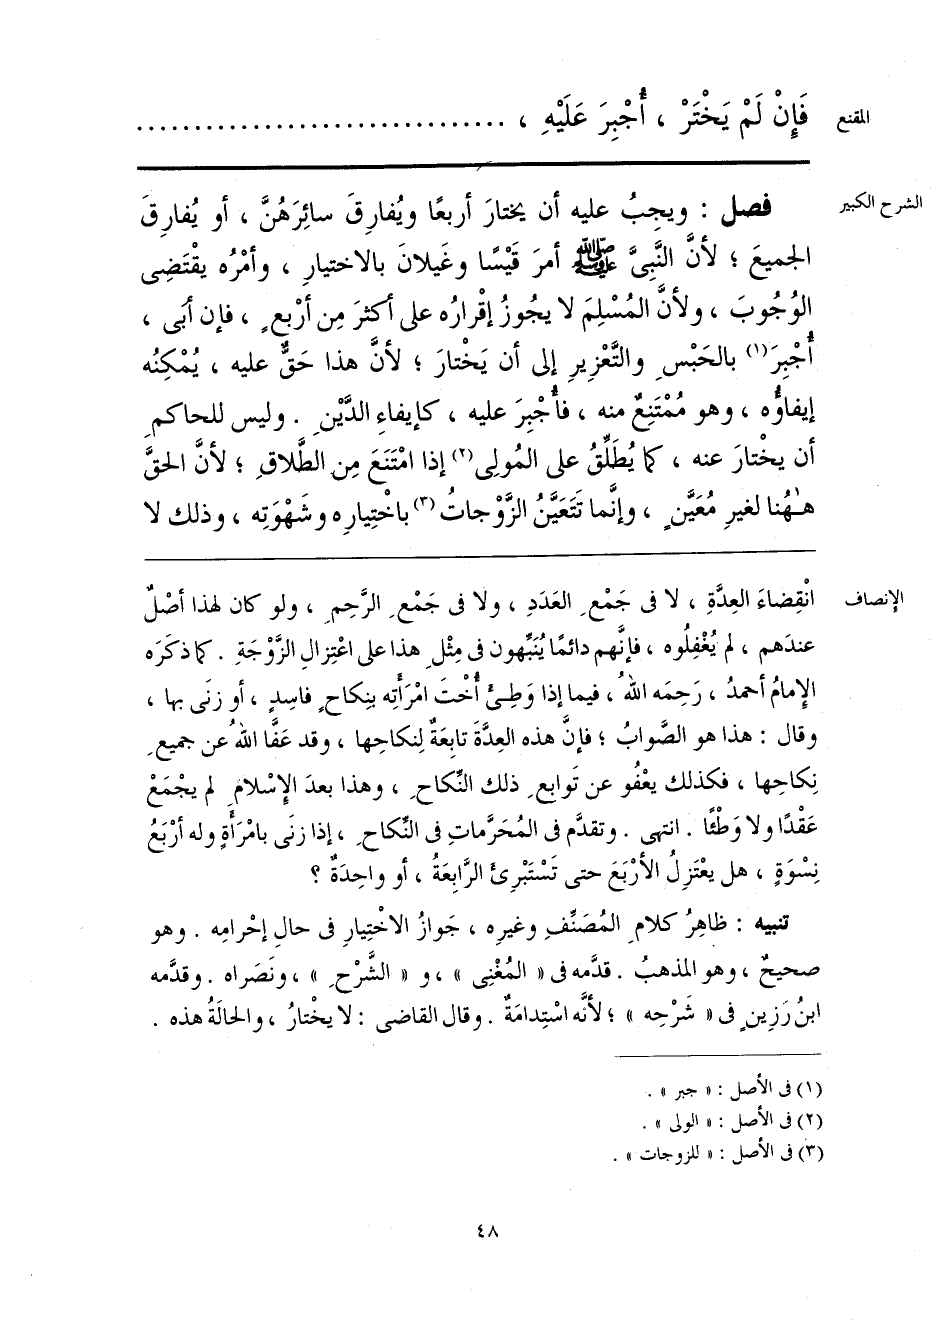 المقنع
فَإِنْ لَمْ يَخْتَرْ ، أُجْبِرَ عَلَيْهِ ، ................................
الشرح الكبير
فصل : ويجبُ عليه أن يختارَ أربعًا ويُفارِقَ سائِرَهُنَّ ، أو يُفارِقَ
الجميعَ ؛ لأنَّ النَّبِىَّ ﷺ أمرَ قَيْسًا وغَيلانَ بالاختيارِ ، وأمْرُه يقْتَضِى
الوُجُوبَ ، ولأنَّ المُسْلِمَ لا يجوزُ إقْرارُه على أكثرَ مِن أرْبعٍ ، فإن أبَى ،
أُجْبِرَ(١) بالحَبْسِ والتَّعْزِيرِ إلى أن يَخْتارَ ؛ لأنَّ هذا حَقٌّ عليه ، يُمْكِنُه
إيفاؤُه ، وهو مُمْتَنِعٌ منه ، فأُجْبِرَ عليه ، كإيفاءِ الدَّيْنِ . وليس للحاكمِ
أن يخْتارَ عنه ، كما يُطَلِّقُ على المُولِى(٢) إذا امْتَنَعَ مِن الطَّلاقِ ؛ لأنَّ الحقَّ
هـٰهُنا لغيرِ مُعَيَّنٍ ، وإنَّما تَتَعَيَّنُ الزَّوْجاتُ(٣) باخْتِيارِه وشَهْوَتِه ، وذلك لا
الإنصاف
انْقِضاءَ العِدَّةِ ، لا فى جَمْعِ العَدَدِ ، ولا فى جَمْعِ الرَّحِمِ ، ولو كان لهذا أصْلٌ
عندَهم ، لم يُغْفِلُوه ، فإنَّهم دائمًا يُنَبِّهون فى مِثْلِ هذا على اعْتِزالِ الزَّوْجَةِ . كما ذكَرَه
الإمامُ أحمدُ ، رَحِمَه اللهُ ، فيما إذا وَطِئَ أُخْتَ امْرَأتِه بنِكاحٍ فاسِدٍ ، أو زنَى بها ،
وقال : هذا هو الصَّوابُ ؛ فإنَّ هذه العِدَّةَ تابِعَةٌ لنِكاحِها ، وقد عَفَا اللهُ عن جميعِ
نِكاحِها ، فكذلك يعْفُو عن تَوابعِ ذلك النِّكاحِ ، وهذا بعدَ الإِسْلامِ لم يجْمَعْ
عَقْدًا ولا وَطْئًا . انتهى . وتقدَّم فى المُحَرَّماتِ فى النِّكاحِ ، إذا زنَى بامْرَأةٍ وله أرْبَعُ
نِسْوَةٍ ، هل يعْتَزِلُ الأرْبَعَ حتى تَسْتَبْرِئَ الرَّابعَةُ ، أو واحِدَةٌ ؟
تنبيه : ظاهِرُ كلامِ المُصَنِّفِ وغيرِه ، جَوازُ الاخْتِيارِ فى حالِ إحْرامِه . وهو
صحيحٌ ، وهو المذهبُ . قدَّمه فى « المُغْنِى » ، و « الشَّرْحِ » ، ونَصَراه . وقدَّمه
ابنُ رَزِينٍ فى « شَرْحِه » ؛ لأنَّه اسْتِدامَةٌ . وقال القاضى : لا يخْتارُ ، والحالَةُ هذه .
(١) فى الأصل : « جبر » .
(٢) فى الأصل : « الولى » .
(٣) فى الأصل : « للزوجات » .
٤٨